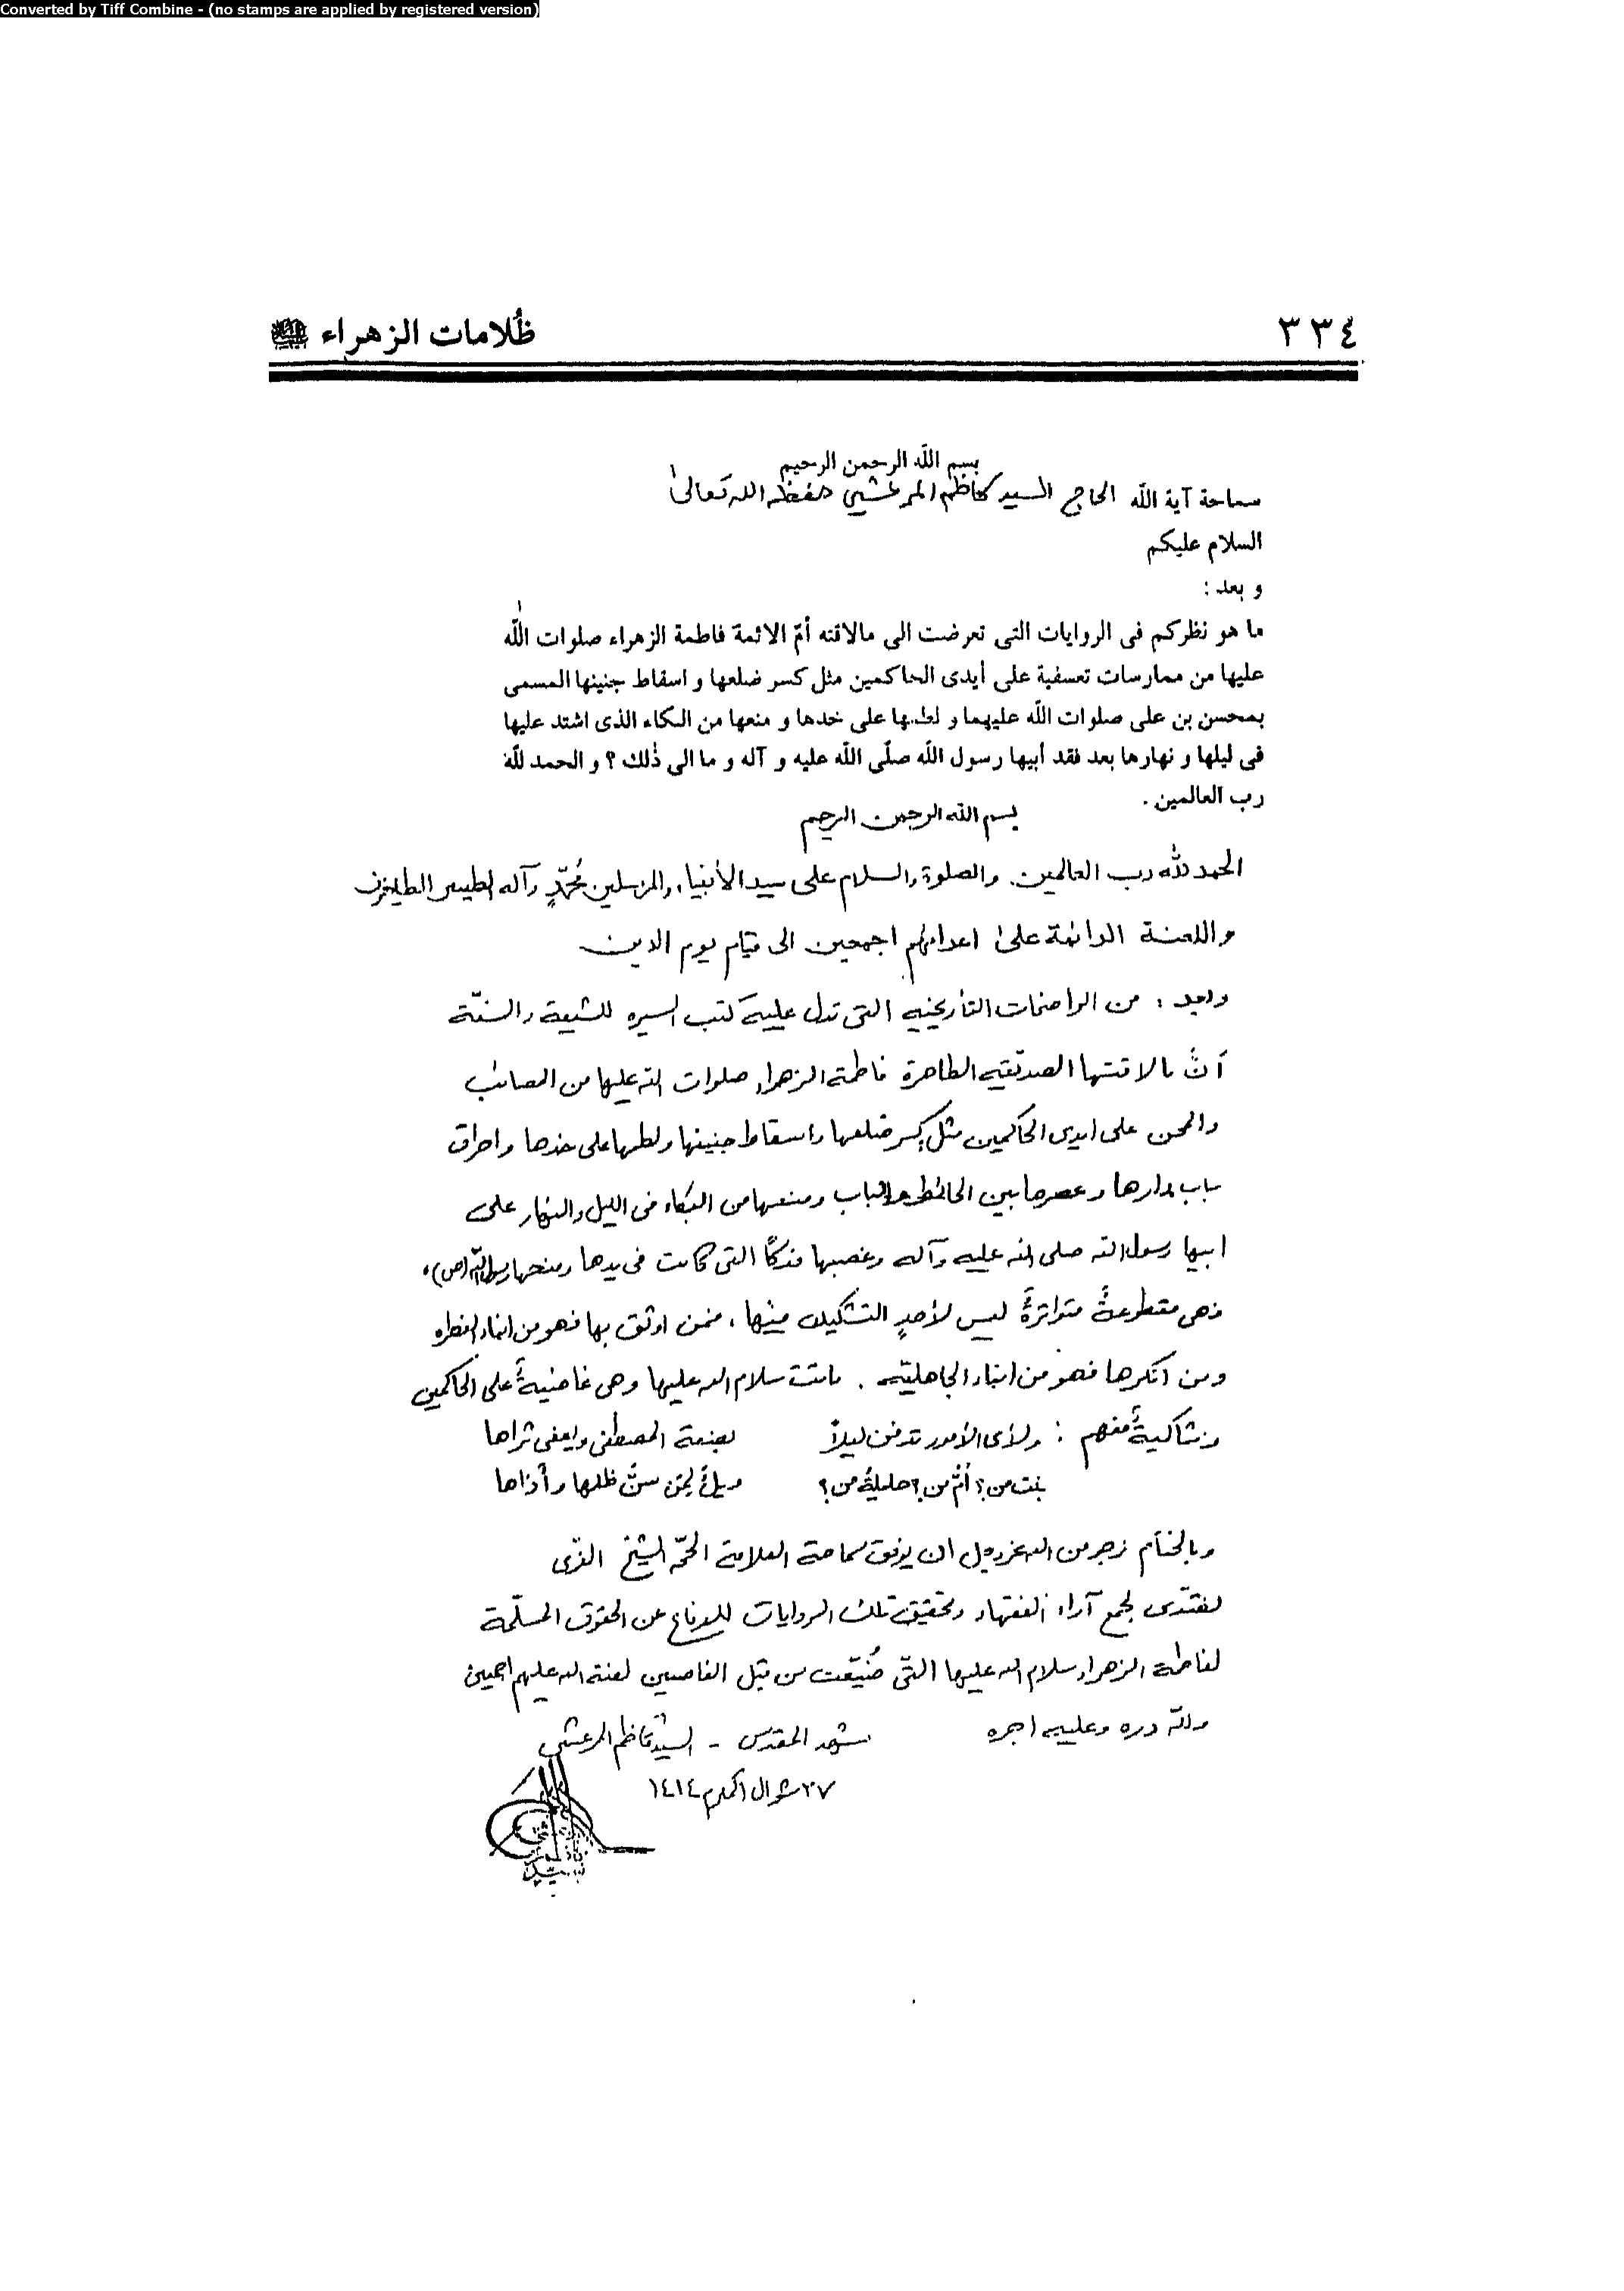 Converted by Tiff Combine - (no stamps are applied by registered version)
٣٣٤
ظُلامات الزهراء
بسم الله الرحمن الرحيم
سماحة آية الله الحاج السيد كاظم المرعشي حفظه الله تعالى
السلام عليكم
و بعد :
ما هو نظركم فى الروايات التى تعرضت الى مالاقته أمّ الائمة فاطمة الزهراء صلوات الله
عليها من ممارسات تعسفية على أيدى الحاكمين مثل كسر ضلعها و اسقاط جنينها المسمى
بمحسن بن على صلوات الله عليهما و لطمها على خدها و منعها من البكاء الذى اشتد عليها
فى ليلها و نهارها بعد فقد أبيها رسول الله صلّى الله عليه و آله و ما الى ذلك ؟ و الحمد لله
رب العالمين .
بسم الله الرحمن الرحيم
الحمد لله رب العالمين والصلوة والسلام على سيد الأنبياء والمرسلين محمّدٍ وآله الطيبين الطاهرين
واللعنة الدائمة على اعدائهم اجمعين الى قيام يوم الدين
وبعد : من الواضحات التأريخيه التى تدل عليه كتب السيره للشيعة والسنّة
أنّ مالاقتها الصديقيه الطاهرة فاطمة الزهراء صلوات الله عليها من المصائب
والمحن على ايدى الحاكمين مثل كسر ضلعها واسقاط جنينها ولطمها على خدها واحراق
باب دارها وعصرها بين الحائط والباب ومنعها من البكاء فى الليل والنهار على
ابيها رسول الله صلى الله عليه وآله وغصبها فدكاً التى كانت فى يدها ومنحها رسول الله (ص)
فهى مقطوعةً متواترةً ليس لأحدٍ التشكيك فيها ، فمن اوثق بها فهو من ابناء الفطره
ومن أنكرها فهو من ابناء الجاهليّه . ماتت سلام الله عليها وهى غاضبةً على الحاكمين
وشاكيةً منهم : ولأى الأمور تدفن ليلاً بضعة المصطفى ويعفى ثراها
بنت من ؟ أمّ من ؟ حليلةُ من ؟ ويلٌ لمن سنّ ظلمها وأذاها
وبالختام نرجو من الله عز وجل ان يوفق سماحة العلامة الحجّة الشيخ الذى
تصدى لجمع آراء الفقهاء وتحقيق تلك الروايات للدفاع عن الحقوق المسلّمة
لفاطمة الزهراء سلام الله عليها التى ضُيّعت من قبل الغاصبين لعنة الله عليهم اجمعين
ولله دره وعليه اجره مشهد المقدس - السيد كاظم المرعشي
٢٧ شوال المكرم ١٤١٤